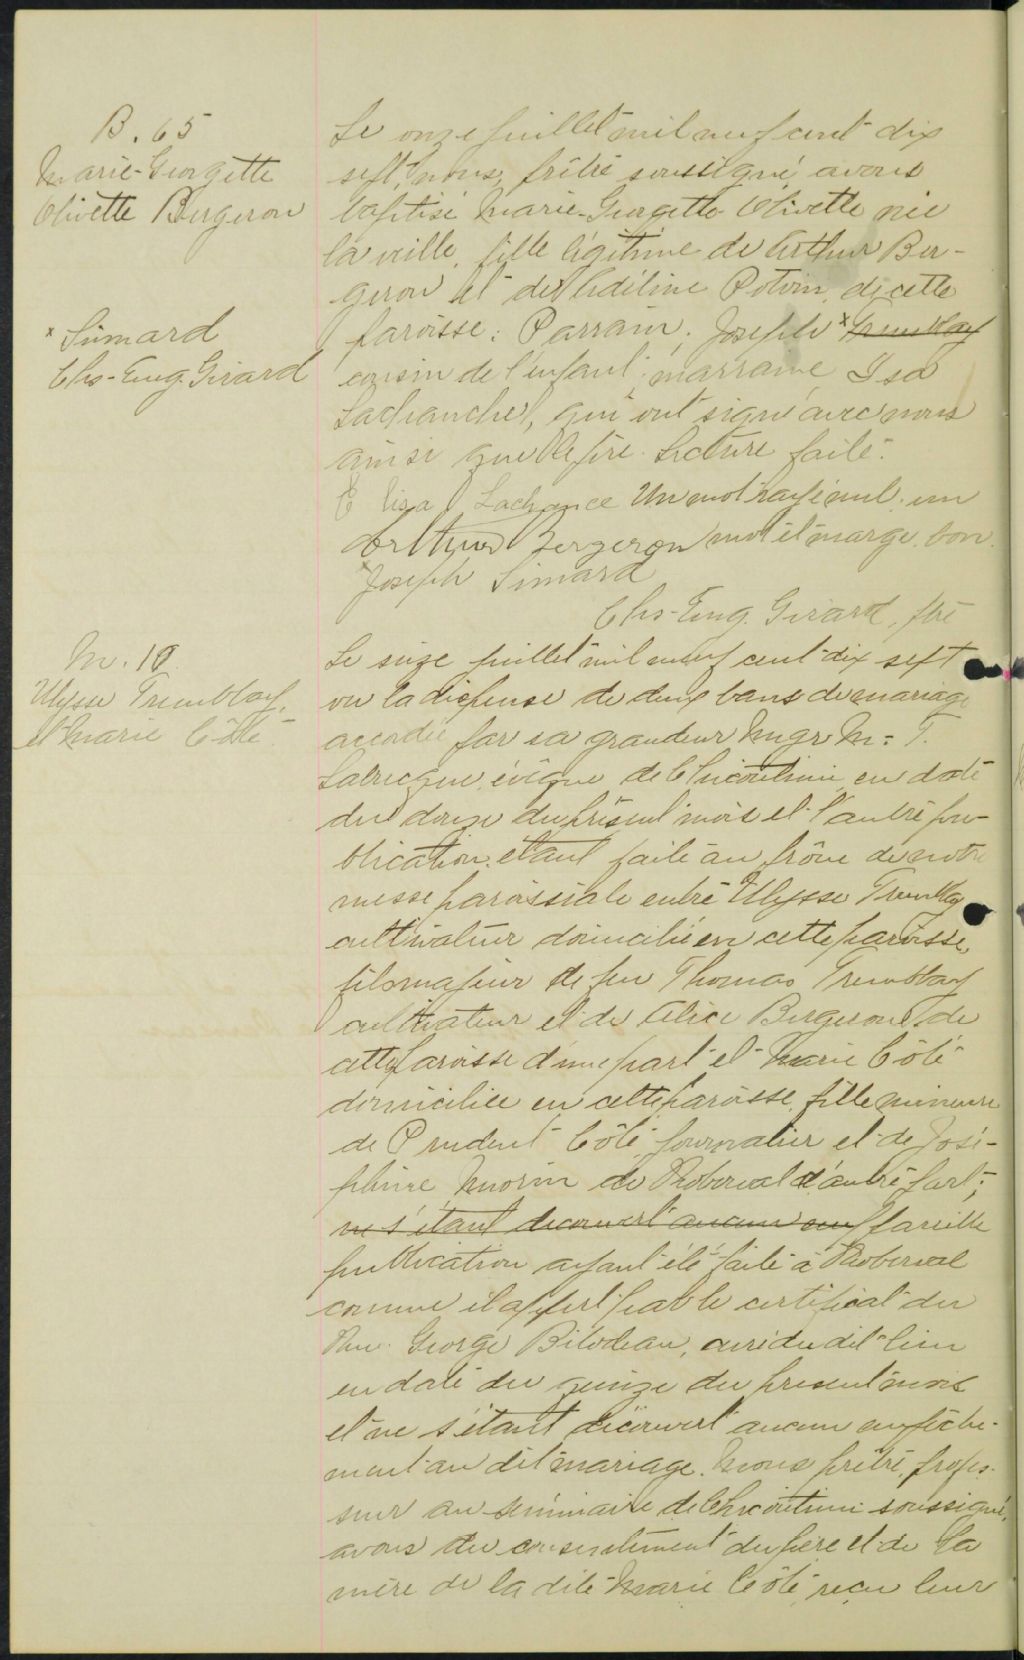 B. 65
Marie-Georgette
Olivette Bergeron
Le onze juillet mil neuf cent dix
sept, nous, prêtre soussigné avons
baptisé Marie-Georgette Olivette née
la veille, fille légitime de Arthur Ber-
geron et de Adéline Potvin, de cette
paroisse: Parrain, Joseph * Tremblay
* Simard
Chs-Eug. Girard
cousin de l'enfant; marraine
Lachance, qui ont signé avec nous
ainsi que le père. Lecture faite.
Lachance Un mot rayé nul. un
Arthur Bergeron mot et marge. bon.
Joseph Simard
Chs-Eug. Girard, ptre
M. 10
Ulysse Tremblay,
et Marie Côté
Le seize juillet mil neuf cent dix sept
vu la dispense de deux bans de mariage
accordée par sa grandeur Mgr M: T.
Labrecque, évêque de Chicoutimi, en date
du douze du présent mois et l'autre pu-
blication étant faite au prône de notre
messe paroissiale entre Ulysse Tremblay
cultivateur domicilié en cette paroisse,
fils majeur de feu Thomas Tremblay
cultivateur et de Alice Bergeron de
cette paroisse d'une part et Marie Côté
domiciliée en cette paroisse, fille mineure
de Prudent Côté, journalier et de José-
phine Morin de Roberval d'autre part;
ne s'étant découvert aucun em pareille
publication ayant été faite à Roberval
comme il appert par le certificat du
Rév. George Bilodeau, curé du dit lieu
en date du quinze du présent mois
et ne s'étant découvert aucun empêche-
ment au dit mariage. Nous prêtre, profes-
seur au séminaire de Chicoutimi soussigné,
avons du consentement du père et de la
mère de la dite Marie Côté, reçu leur